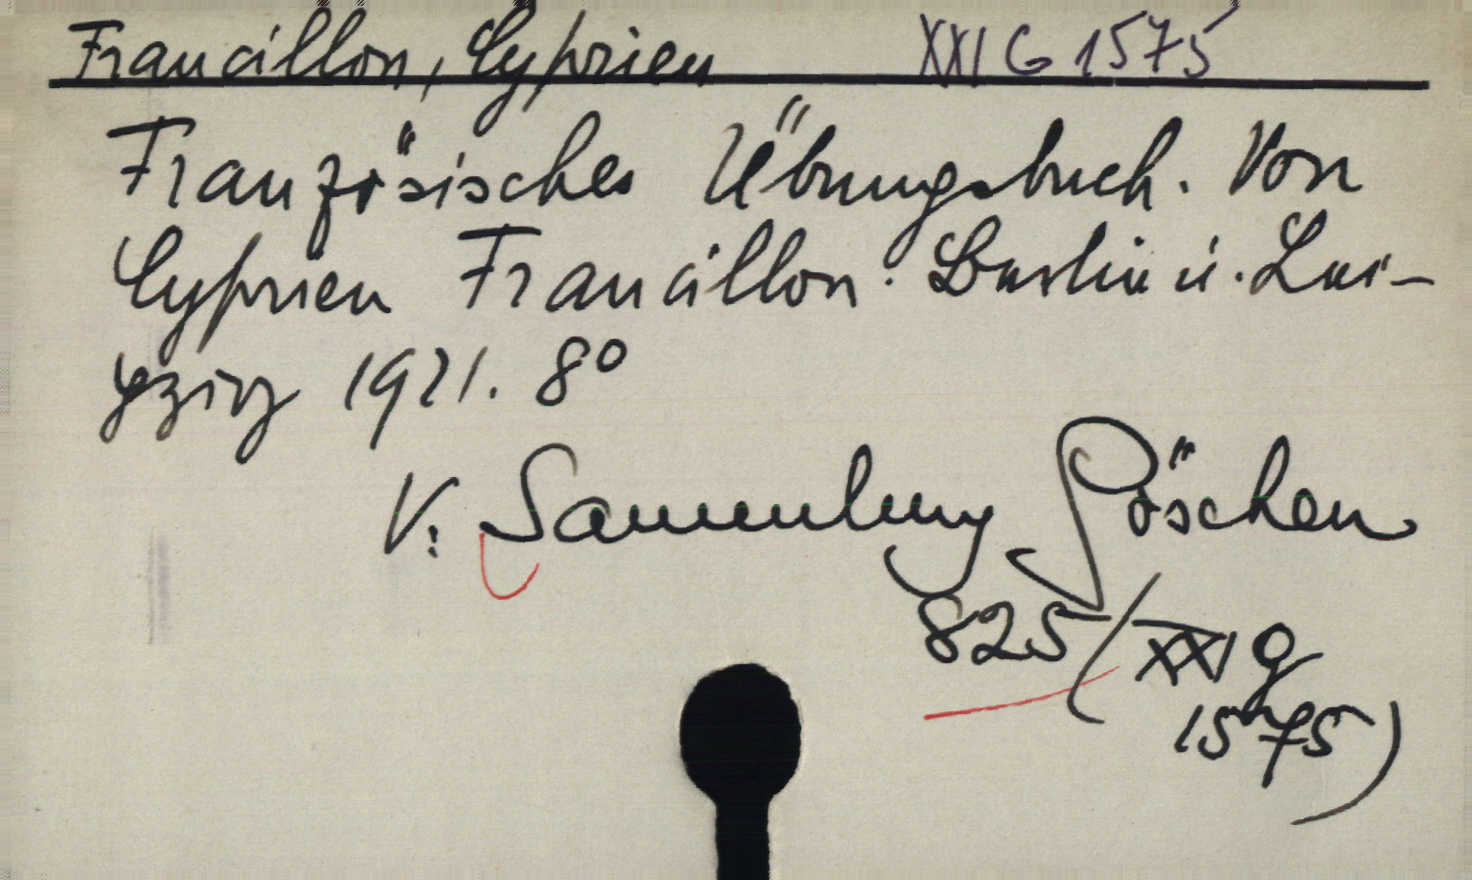 Francillon, Cyprien XXI G 1575
Französisches Übungsbuch. Von
Cyprien Francillon. Berlin u. Lei-
pzig 1921. 8°
V: Sammlung Göschen
825 (XXI g
1575)